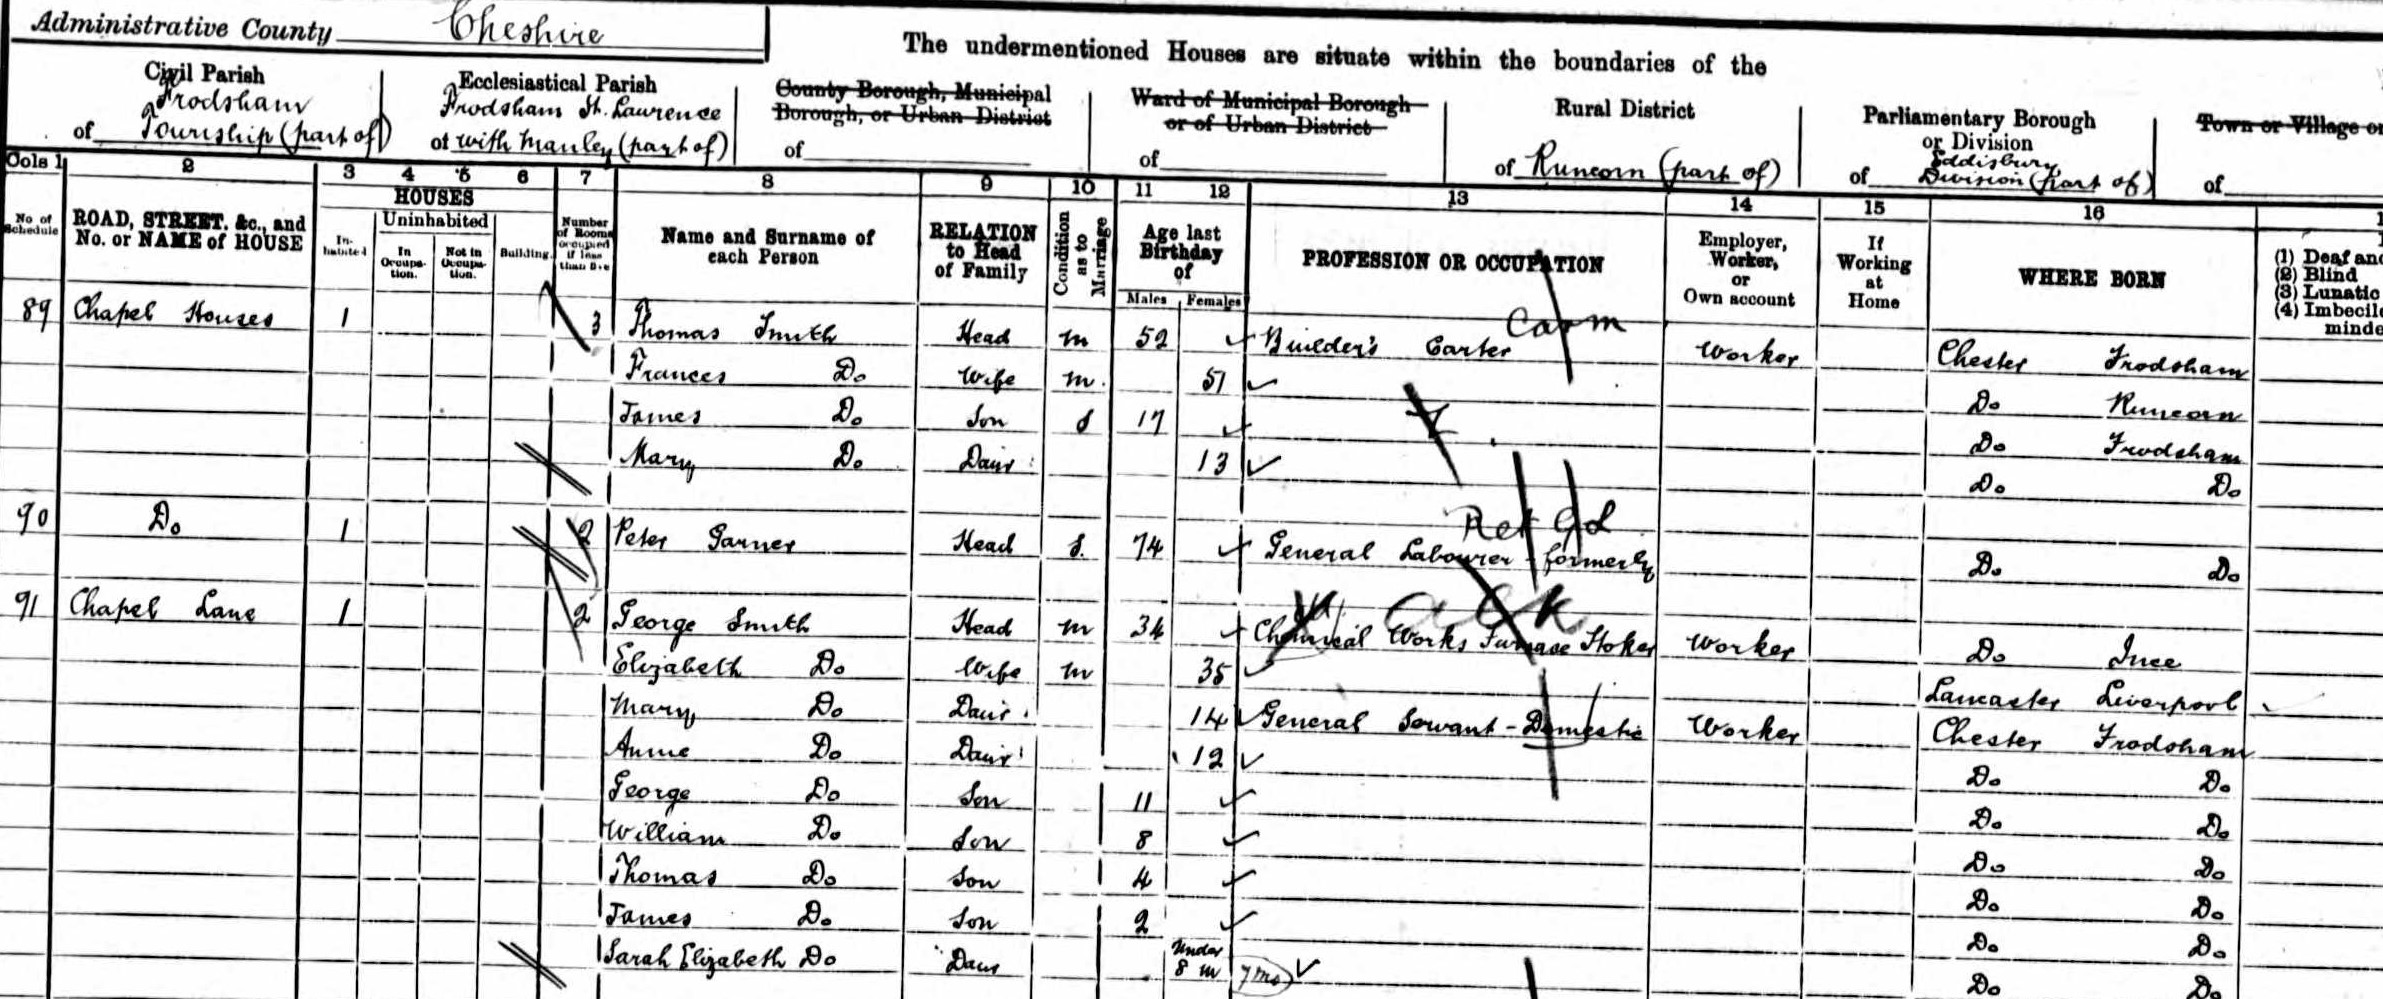 Administrative County Cheshire
The undermentioned Houses are situate within the boundaries of the
Civil Parish
of Frodsham Township (part of)
Ecclesiastical Parish
of Frodsham St. Lawrence with Manley (part of)
County Borough, Municipal Borough, or Urban District
of
Ward of Municipal Borough or of Urban District
of
Rural District
of Runcorn (part of)
Parliamentary Borough or Division
of Eddisbury Division (part of)
Town or Village or
of
Cols 1 2 3 4 5 6 7 8 9 10 11 12 13 14 15 16 1
No of Schedule
ROAD, STREET, &c., and No. or NAME of HOUSE
HOUSES
In-habited
Uninhabited
In Occupa-tion.
Not in Occupa-tion.
Building.
Number of Rooms occupied if less than five
Name and Surname of each Person
RELATION to Head of Family
Condition as to Marriage
Age last Birthday of
Males Females
PROFESSION OR OCCUPATION
Employer, Worker, or Own account
If Working at Home
WHERE BORN
(1) Deaf and
(2) Blind
(3) Lunatic
(4) Imbecile
minde
Carm
89 Chapel Houses 1 3 Thomas Smith Head M 52 Builder's Carter Worker Chester Frodsham
Frances Do Wife M 51 Do Runcorn
James Do Son S 17 Do Frodsham
Mary Do Daur 13 Do Do
Ret G L
90 Do 1 2 Peter Garner Head S. 74 General Labourer - formerly Do Do
91 Chapel Lane 1 2 George Smith Head M 34 Chemical Works Furnace Stoker Worker Do Ince
Elizabeth Do Wife M 35 Lancaster Liverpool
Mary Do Daur 14 General Servant - Domestic Worker Chester Frodsham
Annie Do Daur 12 Do Do
George Do Son 11 Do Do
William Do Son 8 Do Do
Thomas Do Son 4 Do Do
James Do Son 2 Do Do
Sarah Elizabeth Do Daur Under 8 m 7 mo Do Do